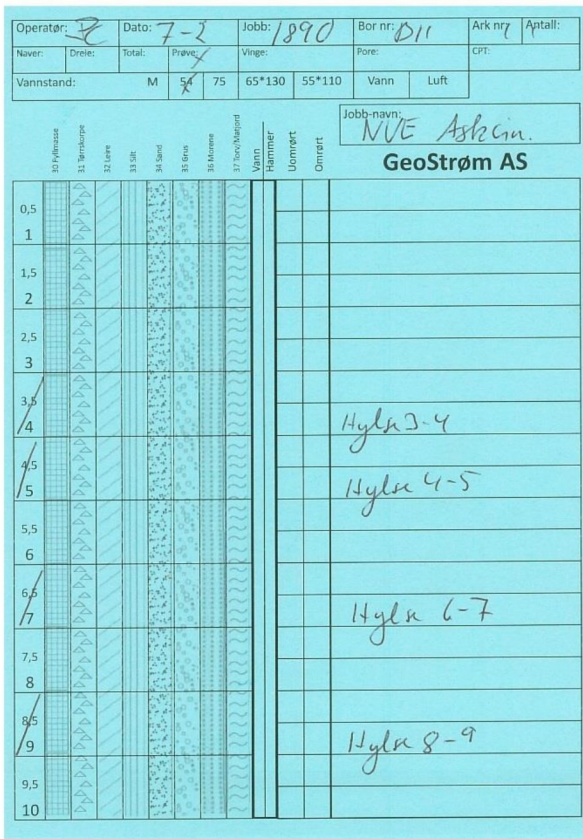 Operatør: Dato: 7-2 Jobb: 1890 Bor nr: D11 Ark nr: 1 Antall: 1
Naver: Dreie: Total: Prøve: X Vinge: Pore: CPT:
Vannstand: M 54 75 65*130 55*110 Vann Luft
Jobb-navn:
NVE
GeoStrøm AS
30 Fyllmasse 31 Tørrskorpe 32 Leire 33 Silt 34 Sand 35 Grus 36 Morene 37 Torv/Matjord Vann Hammer Uomrørt Omrørt
0,5
1
1,5
2
2,5
3
3,5
4 Hylse 3-4
4,5
5 Hylse 4-5
5,5
6
6,5
7 Hylse 6-7
7,5
8
8,5
9 Hylse 8-9
9,5
10